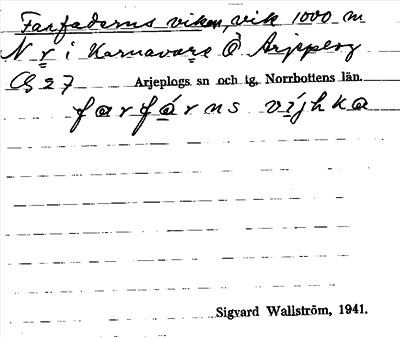 Farfaderns viken, vik 1000 m
N r i Karnavare Ö Arjeplog
Cg 27 Arjeplogs sn och tg, Norrbottens län.
farfárns víjhka
Sigvard Wallström, 1941.